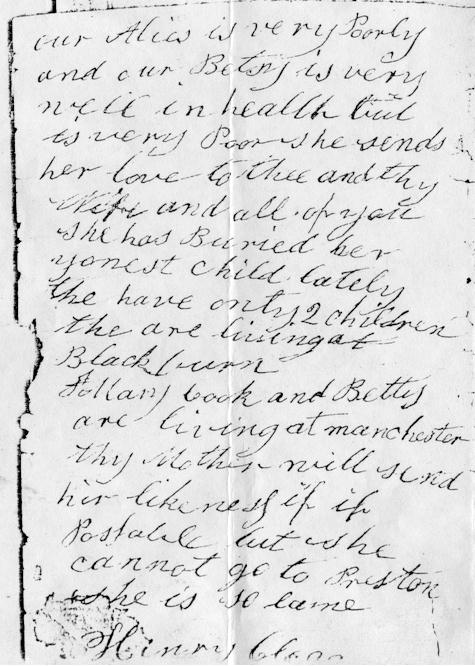 our Alies is very Poorly
and our Betsy is very
well in health but
is very Poor she sends
her love to thee and thy
Wife and all of you
she has Buried her
yonest child lately
the have only 2 children
the are living at
Blackburn
cook and Betty
are living at manchester
thy Mother will send
hir likeness if if
Postable but she
cannot go to Preston
she is so lame
Henry